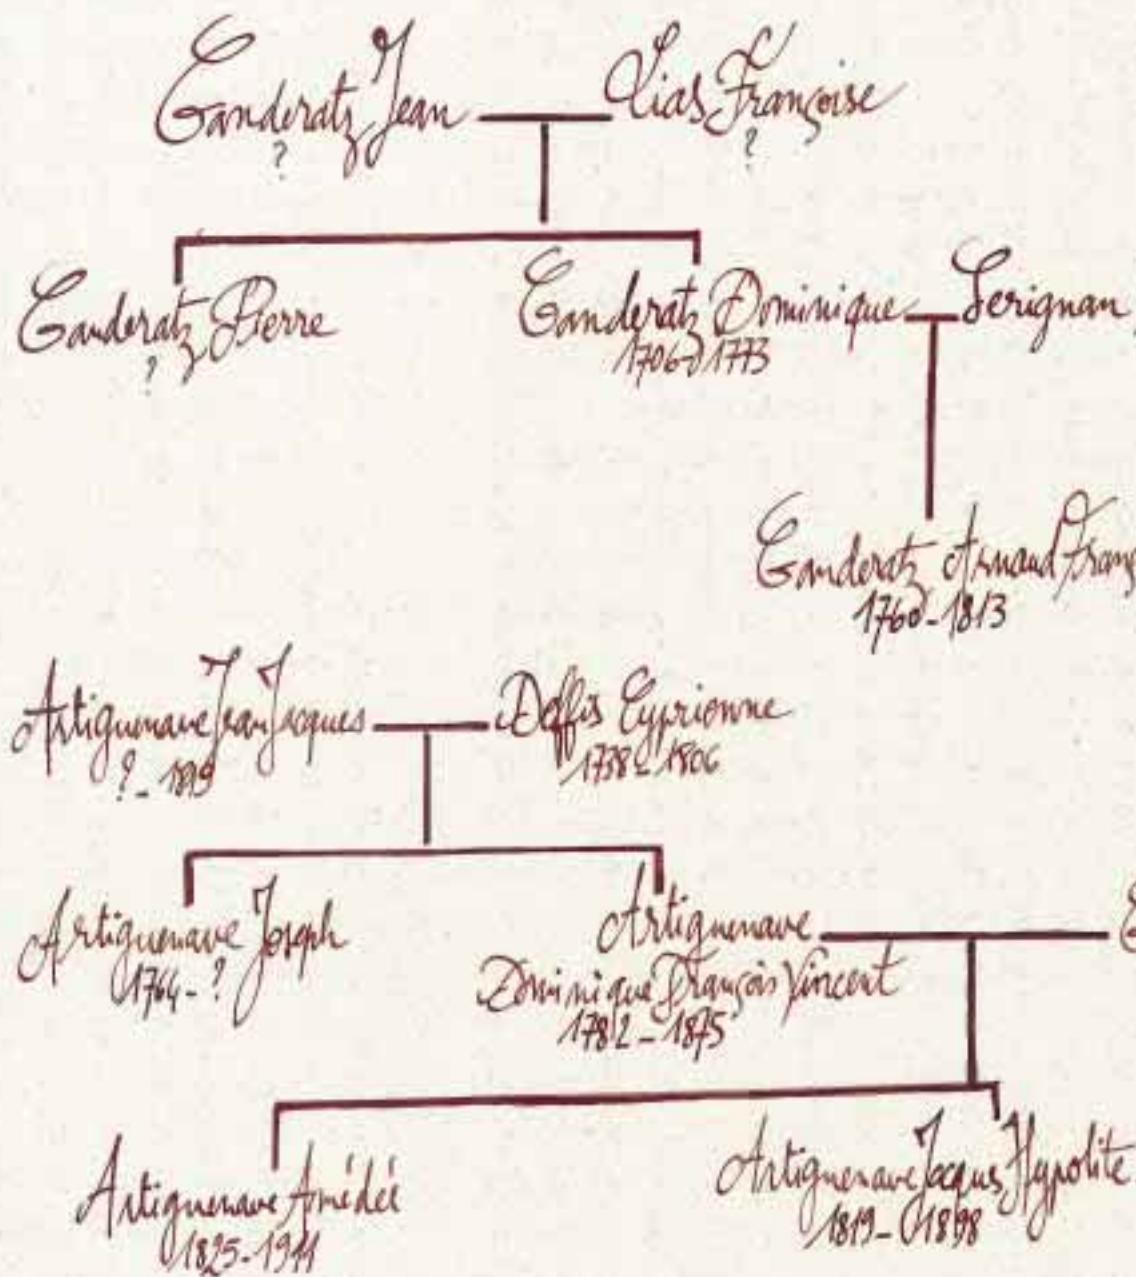 Canderatz Jean
?
Lias Françoise
?
Canderatz Pierre
?
Canderatz Dominique
1706-1773
Serignan
Canderatz Arnaud Franç
1760-1813
Artiguenave Jean Jacques
? - 1819
Deffis Cyprienne
1738-1806
Artiguenave Joseph
1764-?
Artiguenave
Dominique François Vincent
1782-1875
Artiguenave Amédée
1825-1911
Artiguenave Jacques Hypolite
1819-1898